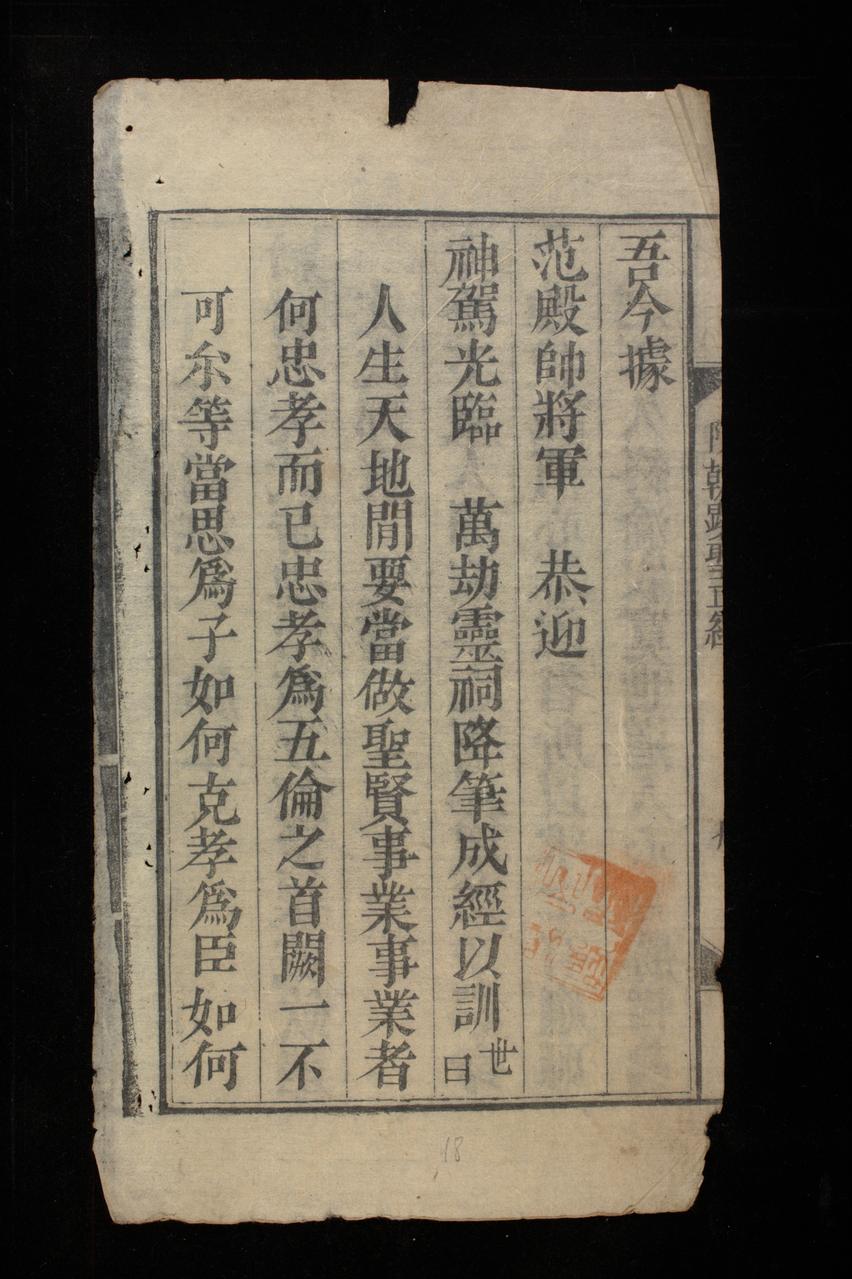 吾今據
范殿帥將軍　恭迎
神駕光臨　萬劫靈祠降筆成經以訓世曰
人生天地間要當做聖賢事業事業者
何忠孝而已忠孝爲五倫之首闕一不
可尒等當思爲子如何克孝爲臣如何
18